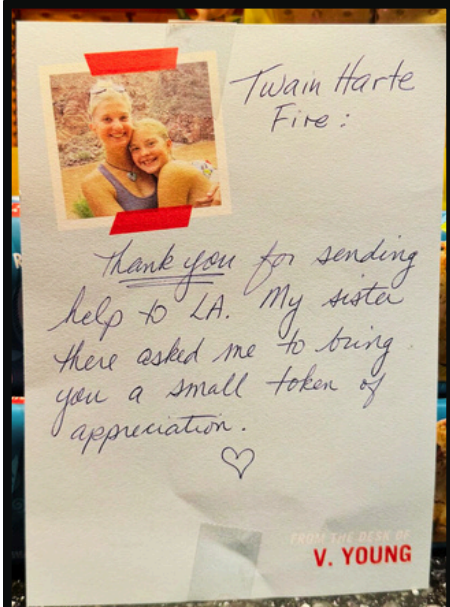 Twain Harte
Fire:
Thank you for sending
help to LA. My sister
there asked me to bring
you a small token of
appreciation.
FROM THE DESK OF
V. YOUNG